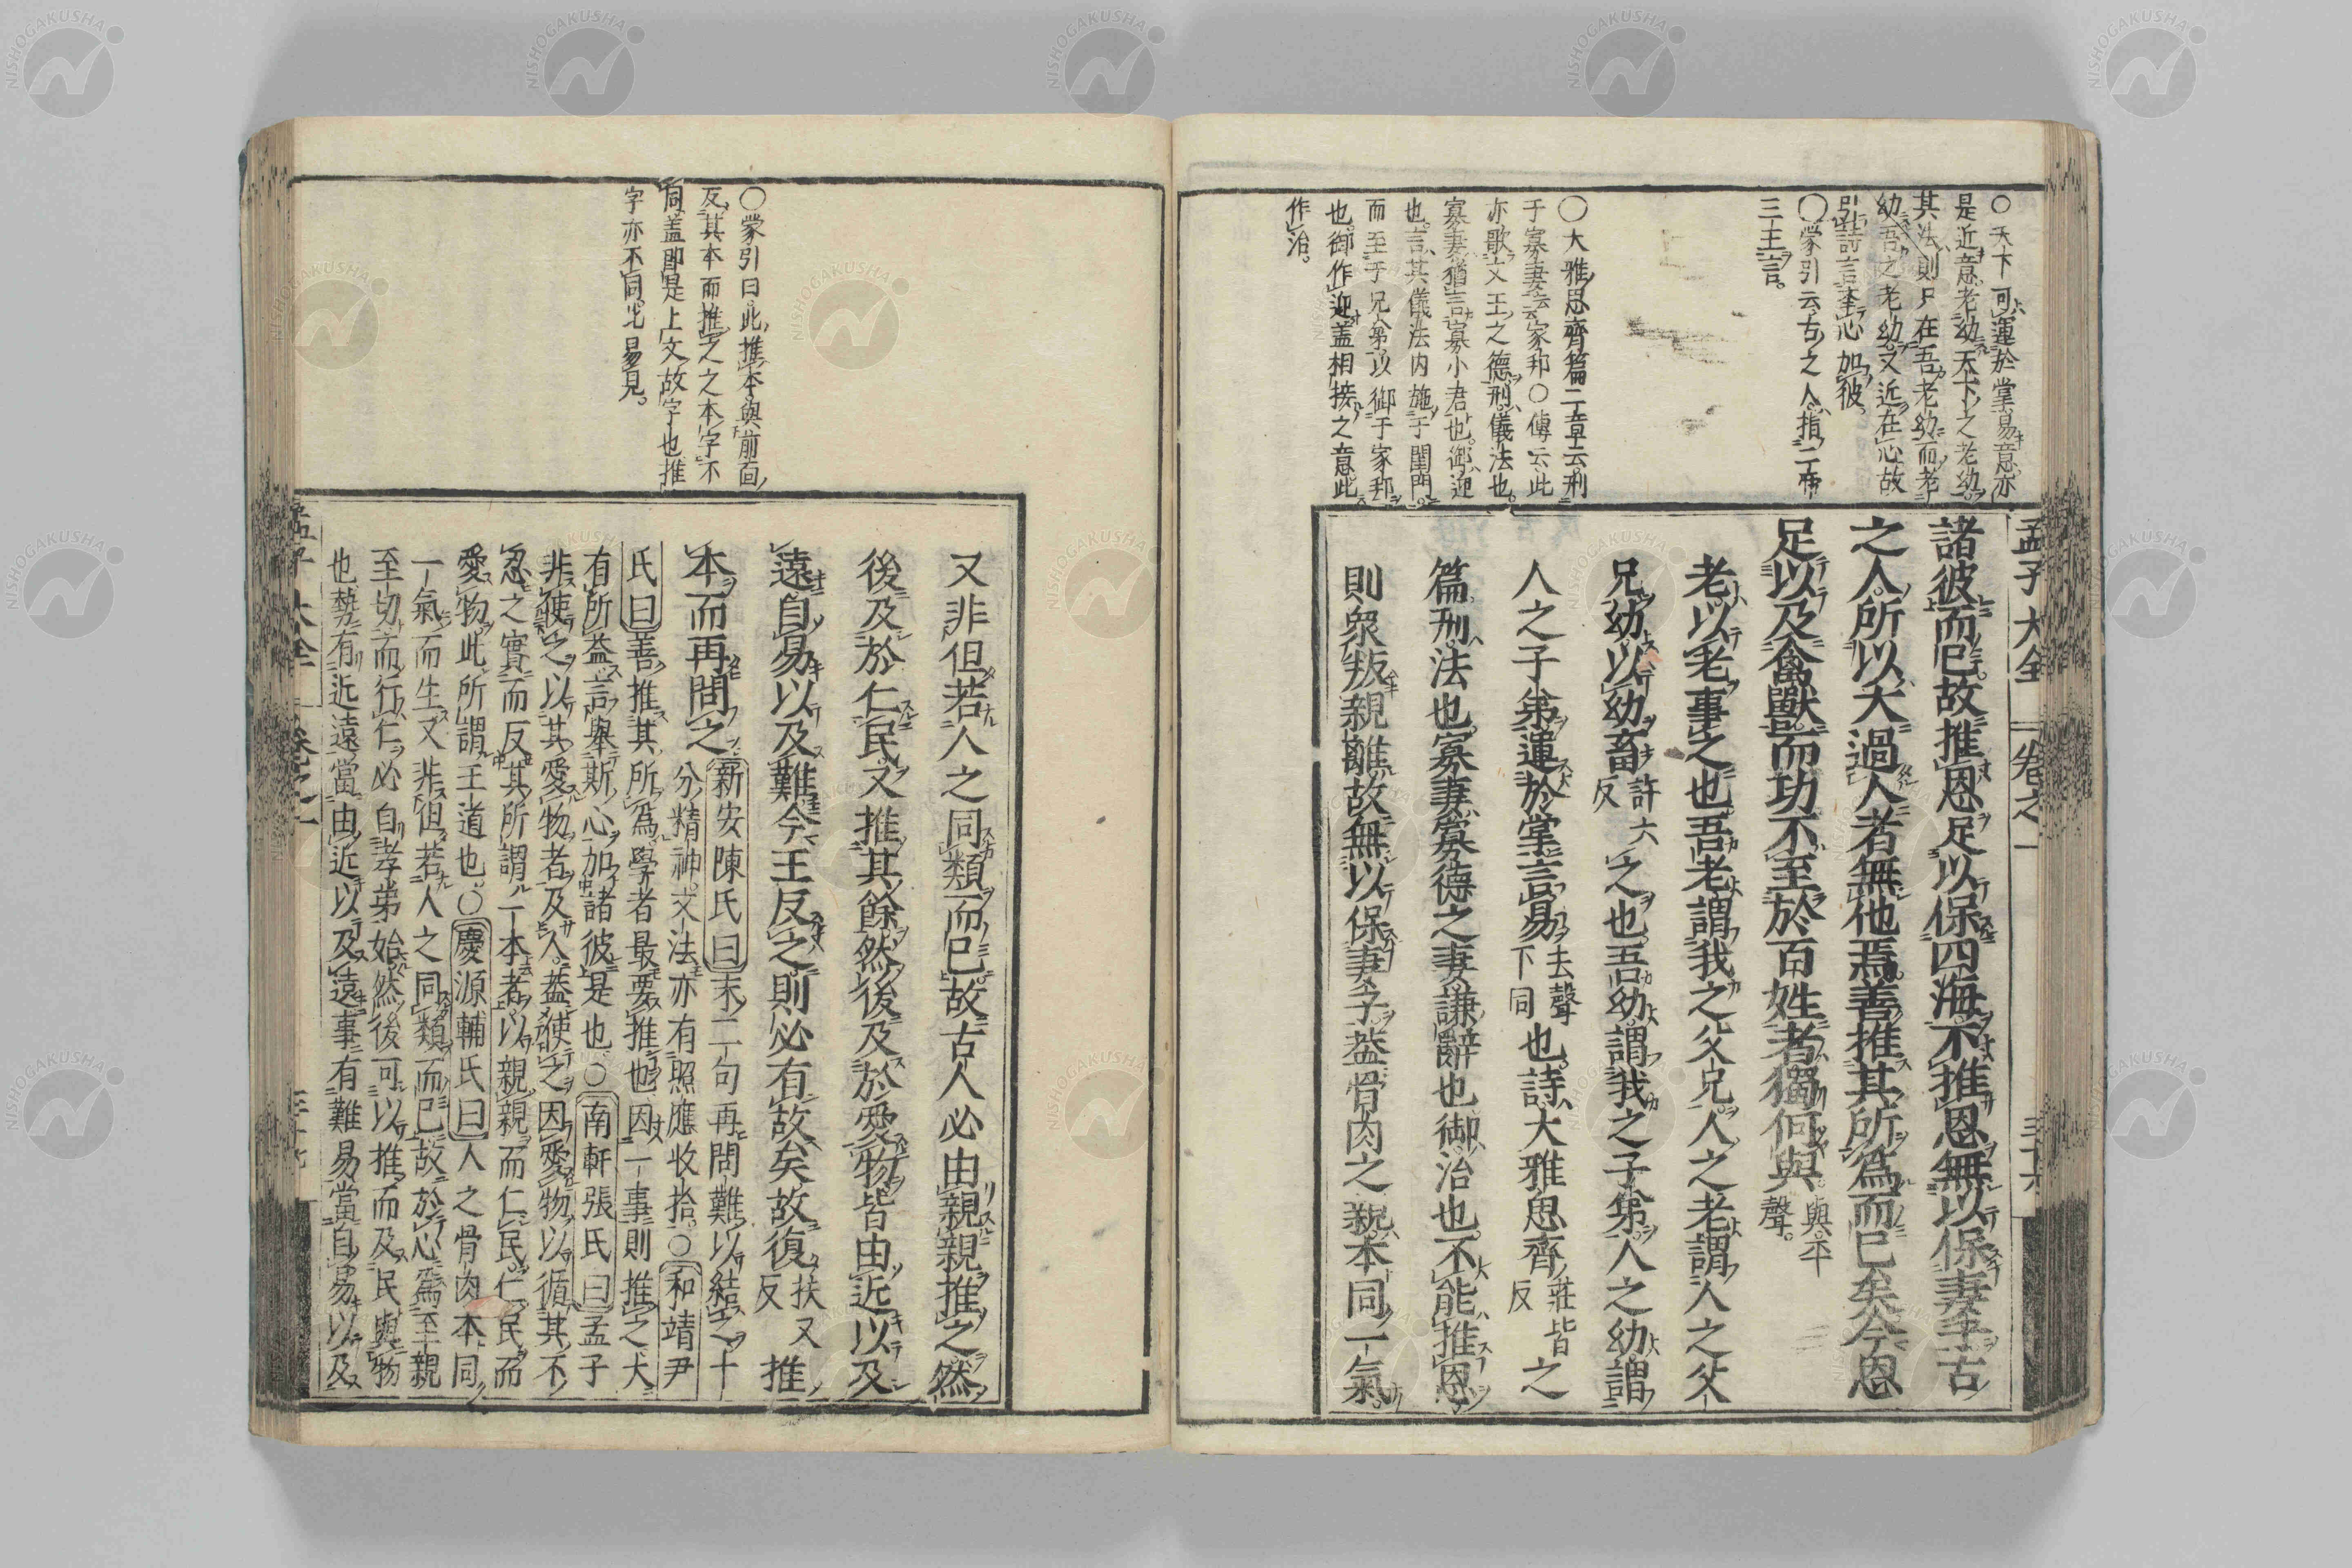 孟子大全 卷之一 三十六
○天下可運於掌易意亦
是近意老幼天下之老幼
其法則只在吾老幼而老
幼吾之老幼又近在心故
引詩言擧心加彼
○蒙引云古之人指二帝
三王言
○大雅思齊篇二章云刑
于寡妻云云家邦○傳云此
亦歌文王之德刑儀法也
寡妻猶言寡小君也御迎
也言其儀法内施于閨門
而至于兄弟以御于家邦
也御作迎蓋相接之意此
作治
諸彼而已故推恩足以保四海不推恩無以保妻子古
之人所以大過人者無他焉善推其所爲而已矣今恩
足以及禽獸而功不至於百姓者獨何與與平聲
老以老事之也吾老謂我之父兄人之老謂人之父
兄幼以幼畜許六反之也吾幼謂我之子弟人之幼謂
人之子弟運於掌言易去聲下同也詩大雅思齊莊皆反之
篇刑法也寡妻寡德之妻謙辭也御治也不能推恩
則衆叛親離故無以保妻子蓋骨肉之親本同一氣
○蒙引曰此推本與前面
反其本而推之之本字不
同蓋卽是上文故字也推
字亦不同此易見
又非但若人之同類而已故古人必由親親推之然
後及於仁民又推其餘然後及於愛物皆由近以及
遠自易以及難今王反之則必有故矣故復扶又反推
本而再問之新安陳氏曰末二句再問難以結之十
分精神文法亦有照應收拾○和靖尹
氏曰善推其所爲學者最要推也因一事則推之大
有所益言擧斯心加諸彼是也○南軒張氏曰孟子
非使之以其愛物者及人蓋使之因愛物以循其不
忍之實而反其所謂一本者以親親而仁民仁民而
愛物此所謂王道也○慶源輔氏曰人之骨肉本同
一氣而生又非但若人之同類而已故於心爲至親
至切而行仁必自孝弟始然後可以推而及民與物
也勢有近遠當由近以及遠事有難易當自易以及
孟子大全 卷之一
NISHOGAKUSHA